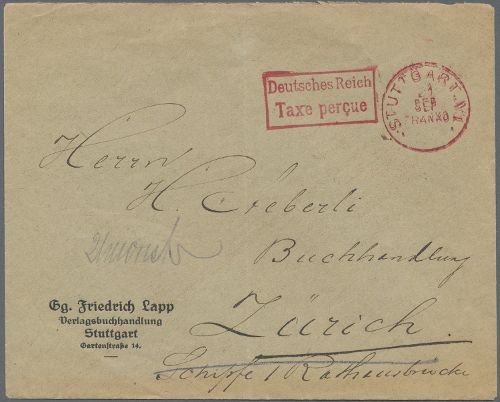 Deutsches Reich
Taxe perçue
STUTTGART. No 1.
SEP
FRANKO
Herrn
H. Eberli
Buchhandlung
Zürich.
Schipfe / Rathausbrücke
Gg. Friedrich Lapp
Verlagsbuchhandlung
Stuttgart
Gartenstraße 14.